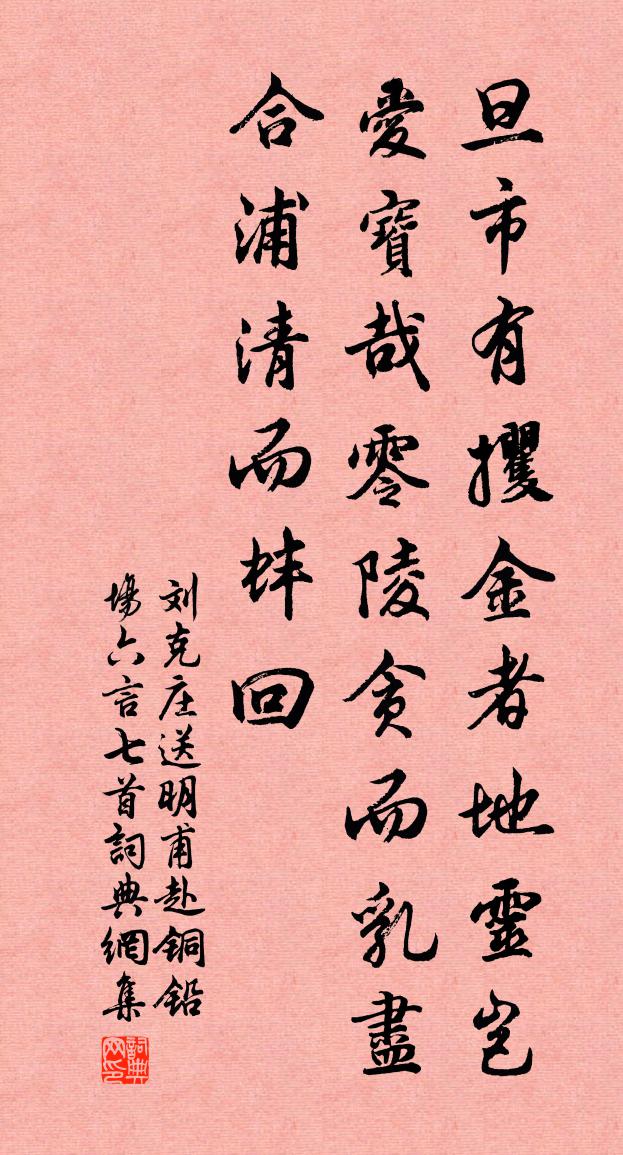 旦市有攫金者地靈豈
愛寶哉零陵貪而乳盡
合浦清而蚌回
刘克庄送明甫赴铜铅
場六言七首詞典網集
詞典网印